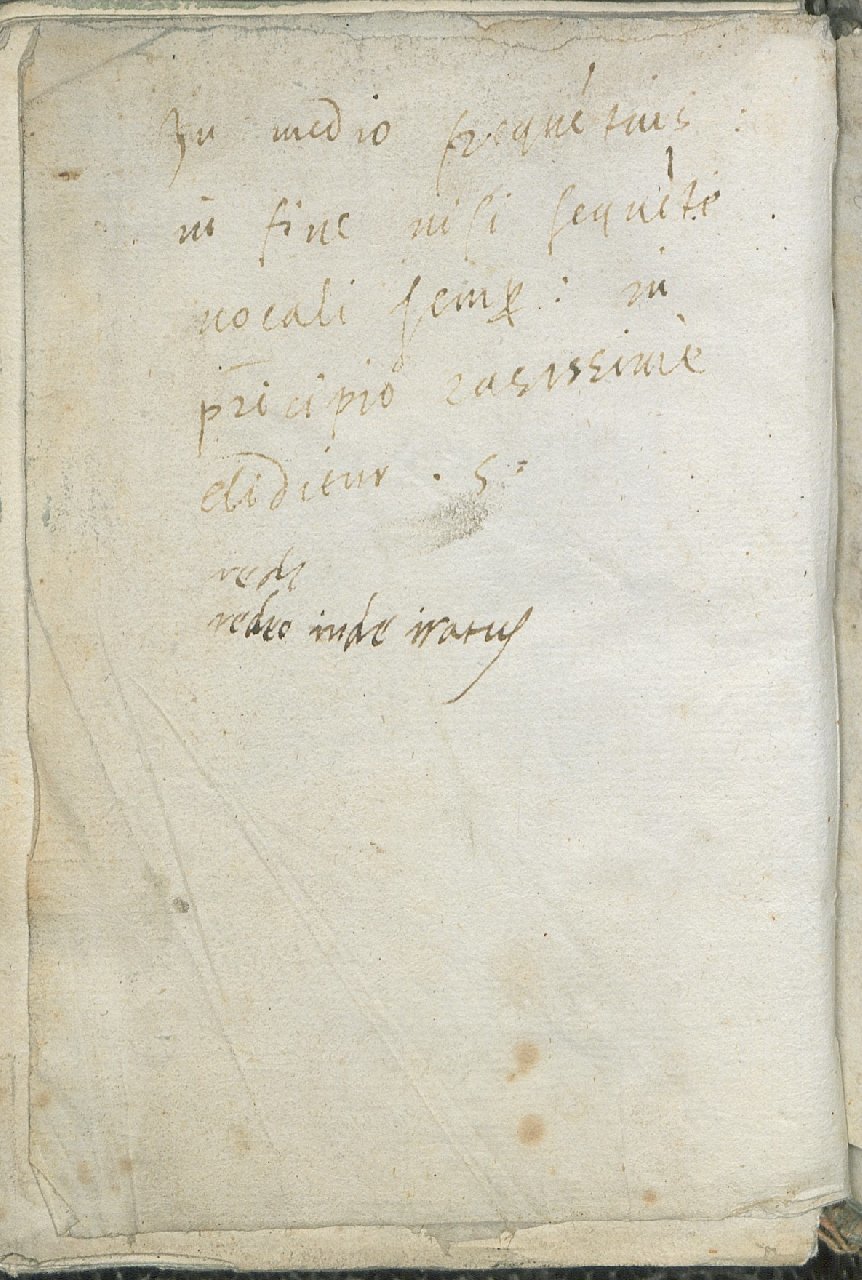 In medio frequẽtius :
in fine nisi sequẽte .
uocali semꝑ : in
prīcipio rarissimè
eliditur . s :
rede
redeo inde iratus